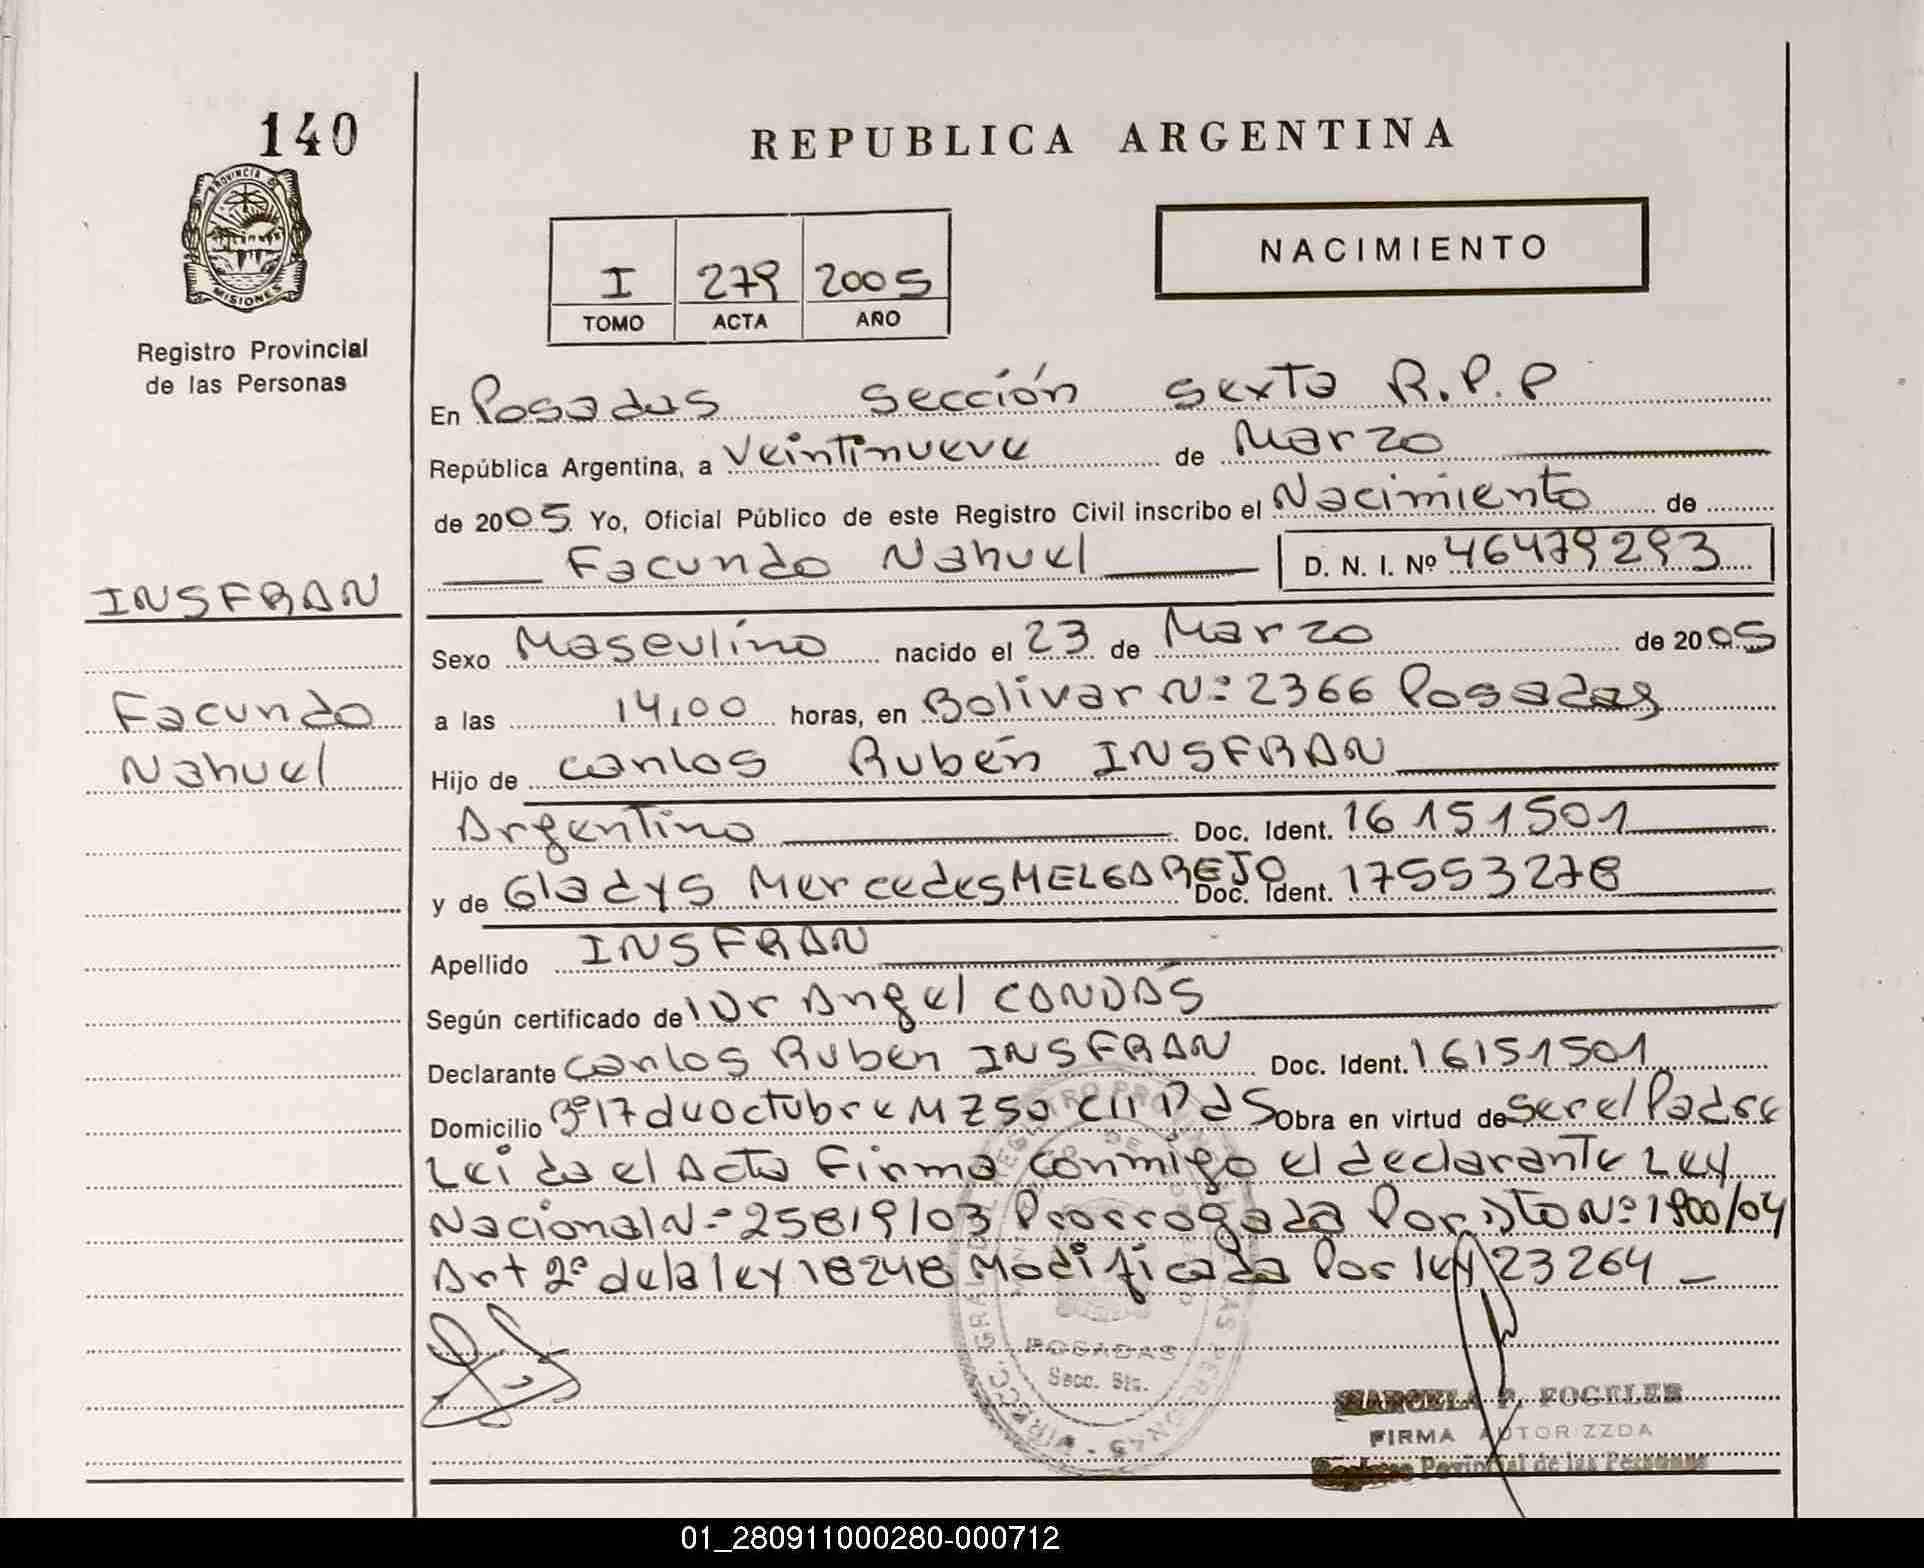 140
REPUBLICA ARGENTINA
PROVINCIA DE
MISIONES
NACIMIENTO
I 279 2005
TOMO ACTA AÑO
Registro Provincial
de las Personas
En Posadas Sección Sexta R.P.P
República Argentina, a Veintinueve de Marzo
de 2005 Yo, Oficial Público de este Registro Civil inscribo el Nacimiento de
Facundo Nahuel D. N. I. Nº 46479293
INSFRAN
Sexo Masculino nacido el 23 de Marzo de 2005
Facundo
a las 14,00 horas, en Bolivar Nº 2366 Posadas
Nahuel
Hijo de Carlos Rubén INSFRAN
Argentino Doc. Ident. 16151501
y de Gladys Mercedes MELGAREJO Doc. Ident. 17553278
Apellido INSFRAN
Según certificado de Dr Angel CANDÁS
Declarante Carlos Ruben INSFRAN Doc. Ident. 16151501
Domicilio Bº 17 de Octubre MZ50 C11 PdS Obra en virtud de Ser el Padre
Leida el Acta Firma conmigo el declarante Ley
Nacional Nº 25819/03 Prorrogada Por Dto Nº 1900/04
Art 2º de la ley 18248 Modificada Por ley 23264
POSADAS
Secc. 6ta.
MARCELA P. FOGELER
FIRMA AUTORIZZDA
Provincial de las Personas
01_280911000280-000712